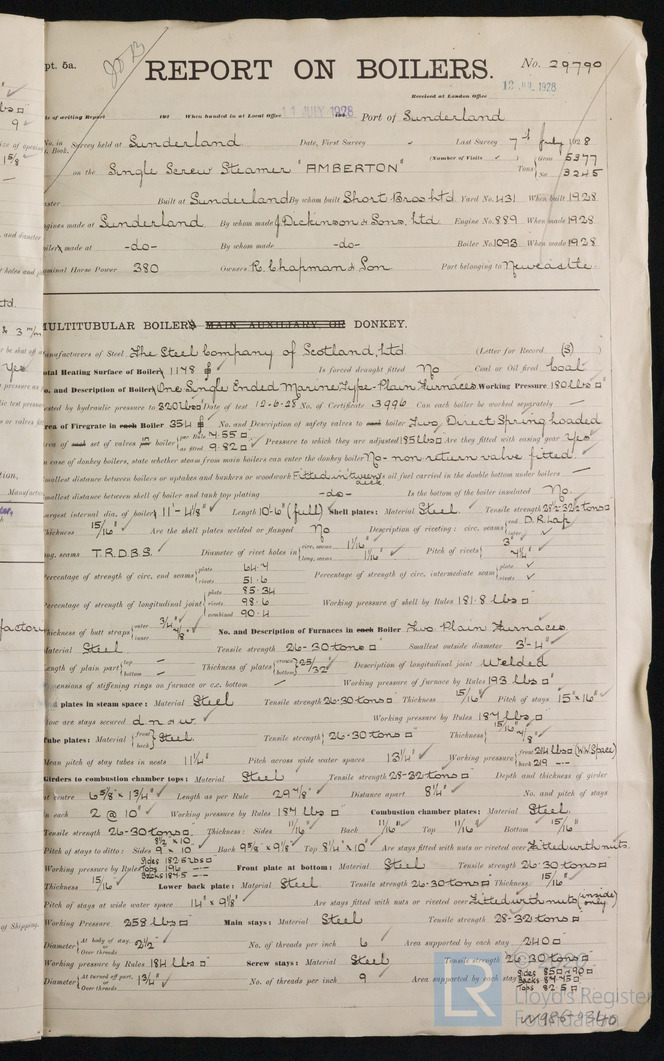 pt. 5a.
REPORT ON BOILERS.
No. 29790
12 JUL 1928
Received at London Office
of writing Report 192 When handed in at Local Office 11 JULY 1928 Port of Sunderland
No. in Survey held at Sunderland Date, First Survey - Last Survey 7th July 1928
Book. (Number of Visits ) Gross 5377
on the Single Screw Steamer "AMBERTON" Tons Net 3245
Built at Sunderland By whom built Short Bros Ltd Yard No. 431 When built 1928
made at Sunderland By whom made J. Dickinson & Sons, Ltd Engine No. 889 When made 1928
made at -do- By whom made -do- Boiler No. 1093 When made 1928
Horse Power 380 Owners R. Chapman & Son Port belonging to Newcastle
MULTITUBULAR BOILERS MAIN, AUXILIARY, OR DONKEY.
Manufacturers of Steel The Steel Company of Scotland, Ltd (Letter for Record (S) )
Total Heating Surface of Boiler 1148 Is forced draught fitted No Coal or Oil fired Coal
No. and Description of Boiler One Single Ended Marine Type - Plain Furnaces Working Pressure 180 lbs
Tested by hydraulic pressure to 320 lbs Date of test 12-6-28 No. of Certificate 3996 Can each boiler be worked separately -
Area of Firegrate in each Boiler 35.4 No. and Description of safety valves to each boiler Two, Direct Spring loaded
Area of each set of valves per boiler per Rule 4.55 as fitted 9.82 Pressure to which they are adjusted 185 lbs Are they fitted with easing gear Yes
In case of donkey boilers, state whether steam from main boilers can enter the donkey boiler No - non return valve fitted.
Smallest distance between boilers or uptakes and bunkers or woodwork Fitted in 'tween deck Is oil fuel carried in the double bottom under boilers -
Smallest distance between shell of boiler and tank top plating -do- Is the bottom of the boiler insulated No.
Largest internal dia. of boiler 11'-4 1/8" Length 10'-6" (full) Shell plates: Material Steel Tensile strength 28 1/2-32 1/2 tons
Thickness 15/16" Are the shell plates welded or flanged No Description of riveting: circ. seams end D.R. Lap. inter. -
long. seams T.R.D.B.S. Diameter of rivet holes in circ. seams 1 1/16" long. seams 1 1/16" Pitch of rivets 3" 7 1/4"
Percentage of strength of circ. end seams plate 64.7 rivets 51.6 Percentage of strength of circ. intermediate seam plate rivets
Percentage of strength of longitudinal joint plate 85.34 rivets 98.6 combined 90.4 Working pressure of shell by Rules 181.8 lbs
Thickness of butt straps outer 3/4" inner 7/8" No. and Description of Furnaces in each Boiler Two Plain Furnaces
Material Steel Tensile strength 26-30 tons Smallest outside diameter 3'-4"
Length of plain part top - bottom - Thickness of plates crown bottom 25/32" Description of longitudinal joint Welded
Dimensions of stiffening rings on furnace or c.c. bottom - Working pressure of furnace by Rules 193 lbs
End plates in steam space: Material Steel Tensile strength 26-30 tons Thickness 15/16" Pitch of stays 15" x 16"
How are stays secured d n a w Working pressure by Rules 187 lbs
Tube plates: Material front back Steel Tensile strength 26-30 tons Thickness 15/16" 7/8"
Mean pitch of stay tubes in nests 11 1/4" Pitch across wide water spaces 13 1/4" Working pressure front 214 lbs (W.W. Space) back 219
Girders to combustion chamber tops: Material Steel Tensile strength 28-32 tons Depth and thickness of girder
at centre 6 5/8" x 1 3/4" Length as per Rule 29 7/8" Distance apart 8 1/4" No. and pitch of stays
in each 2 @ 10" Working pressure by Rules 187 lbs Combustion chamber plates: Material Steel
Tensile strength 26-30 tons Thickness: Sides 11/16" Back 11/16" Top 11/16" Bottom 15/16"
Pitch of stays to ditto: Sides 8 1/2 x 10" 9 x 10" Back 9 5/8" x 9 1/8" Top 8 1/4" x 10" Are stays fitted with nuts or riveted over Fitted with nuts.
Working pressure by Rules Sides 182.6 lbs Tops 196 Backs 184.5 Front plate at bottom: Material Steel Tensile strength 26-30 tons
Thickness 15/16" Lower back plate: Material Steel Tensile strength 26-30 tons Thickness 15/16"
Pitch of stays at wide water space 14" x 9 1/8" Are stays fitted with nuts or riveted over Fitted with nuts (inside only)
Working Pressure 258 lbs Main stays: Material Steel Tensile strength 28-32 tons
Diameter At body of stay, or Over threads 2 1/2" No. of threads per inch 6 Area supported by each stay 240
Working pressure by Rules 184 lbs Screw stays: Material Steel Tensile strength 26-30 tons
Diameter At turned off part, or Over threads 1 3/4" No. of threads per inch 9 Area supported by each stay Sides 85 & 90 Backs 87.45 Tops 82.5
LR
Lloyd's Register
Foundation
W986-0340